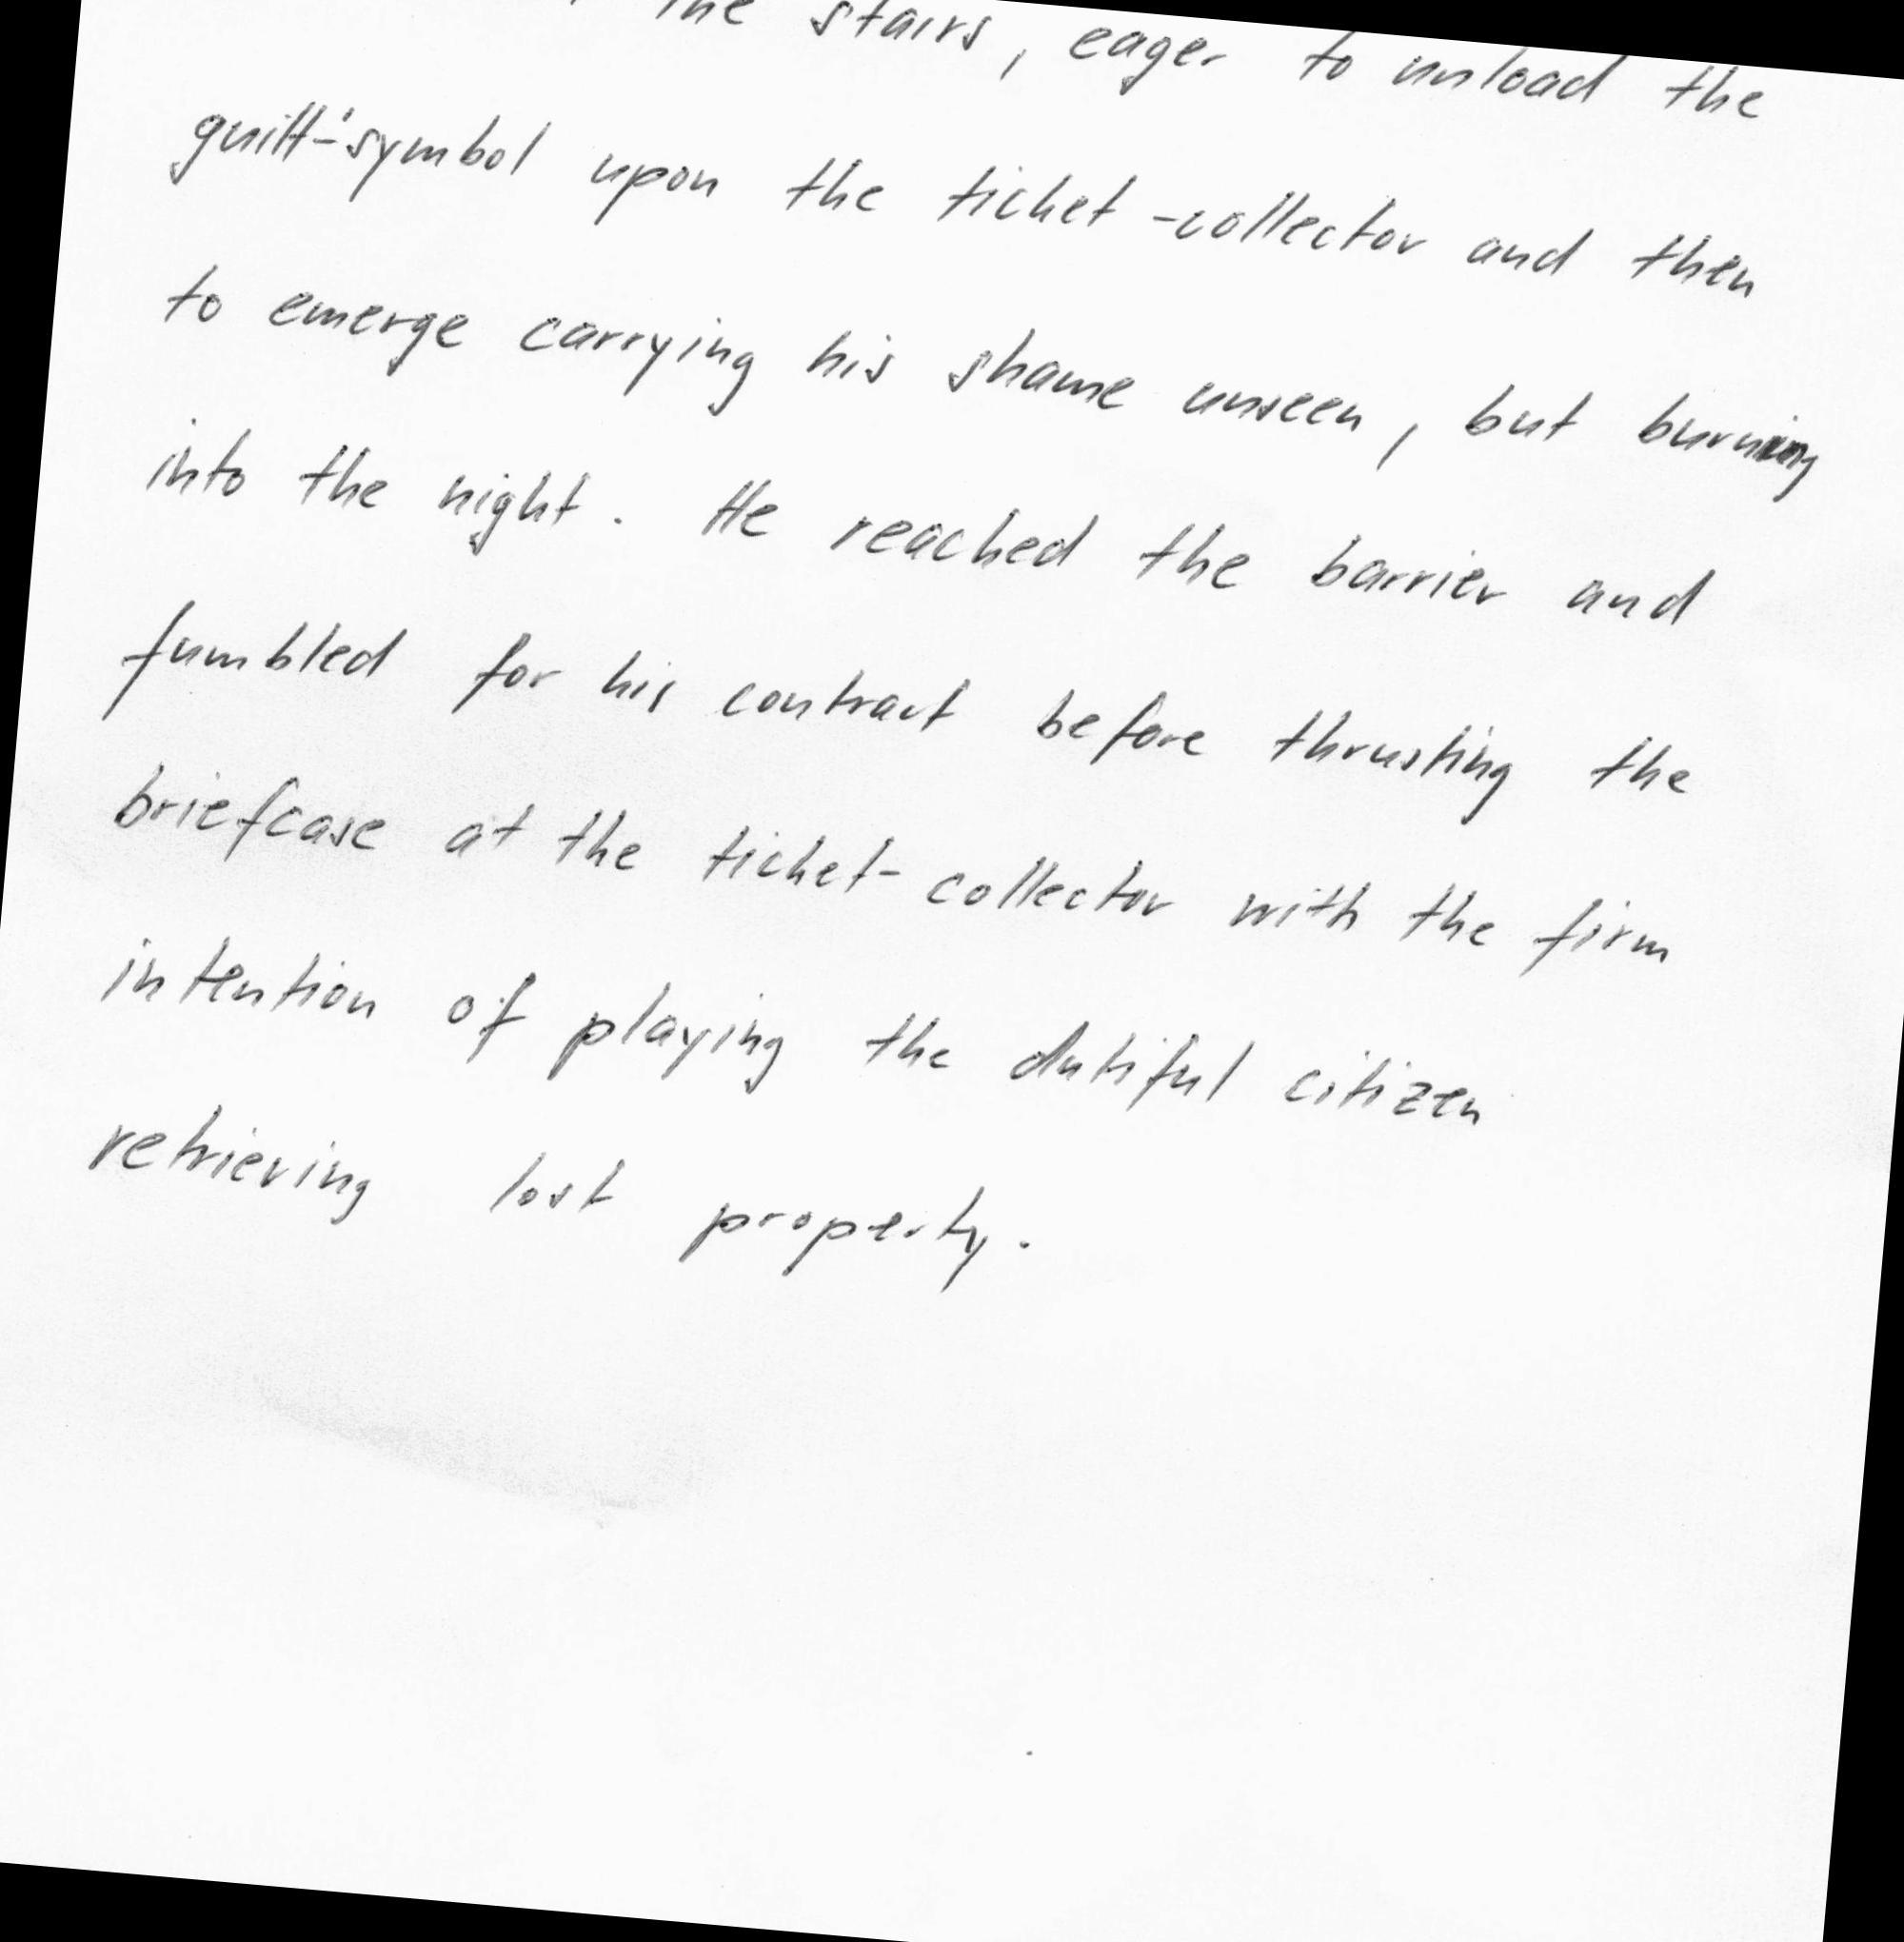 the stairs, eager to unload the
guilt-'symbol upon the ticket-collector and then
to emerge carrying his shame unseen, but burning
into the night. He reached the barrier and
fumbled for his contract before thrusting the
briefcase at the ticket-collector with the firm
intention of playing the dutiful citizen
retrieving lost property.